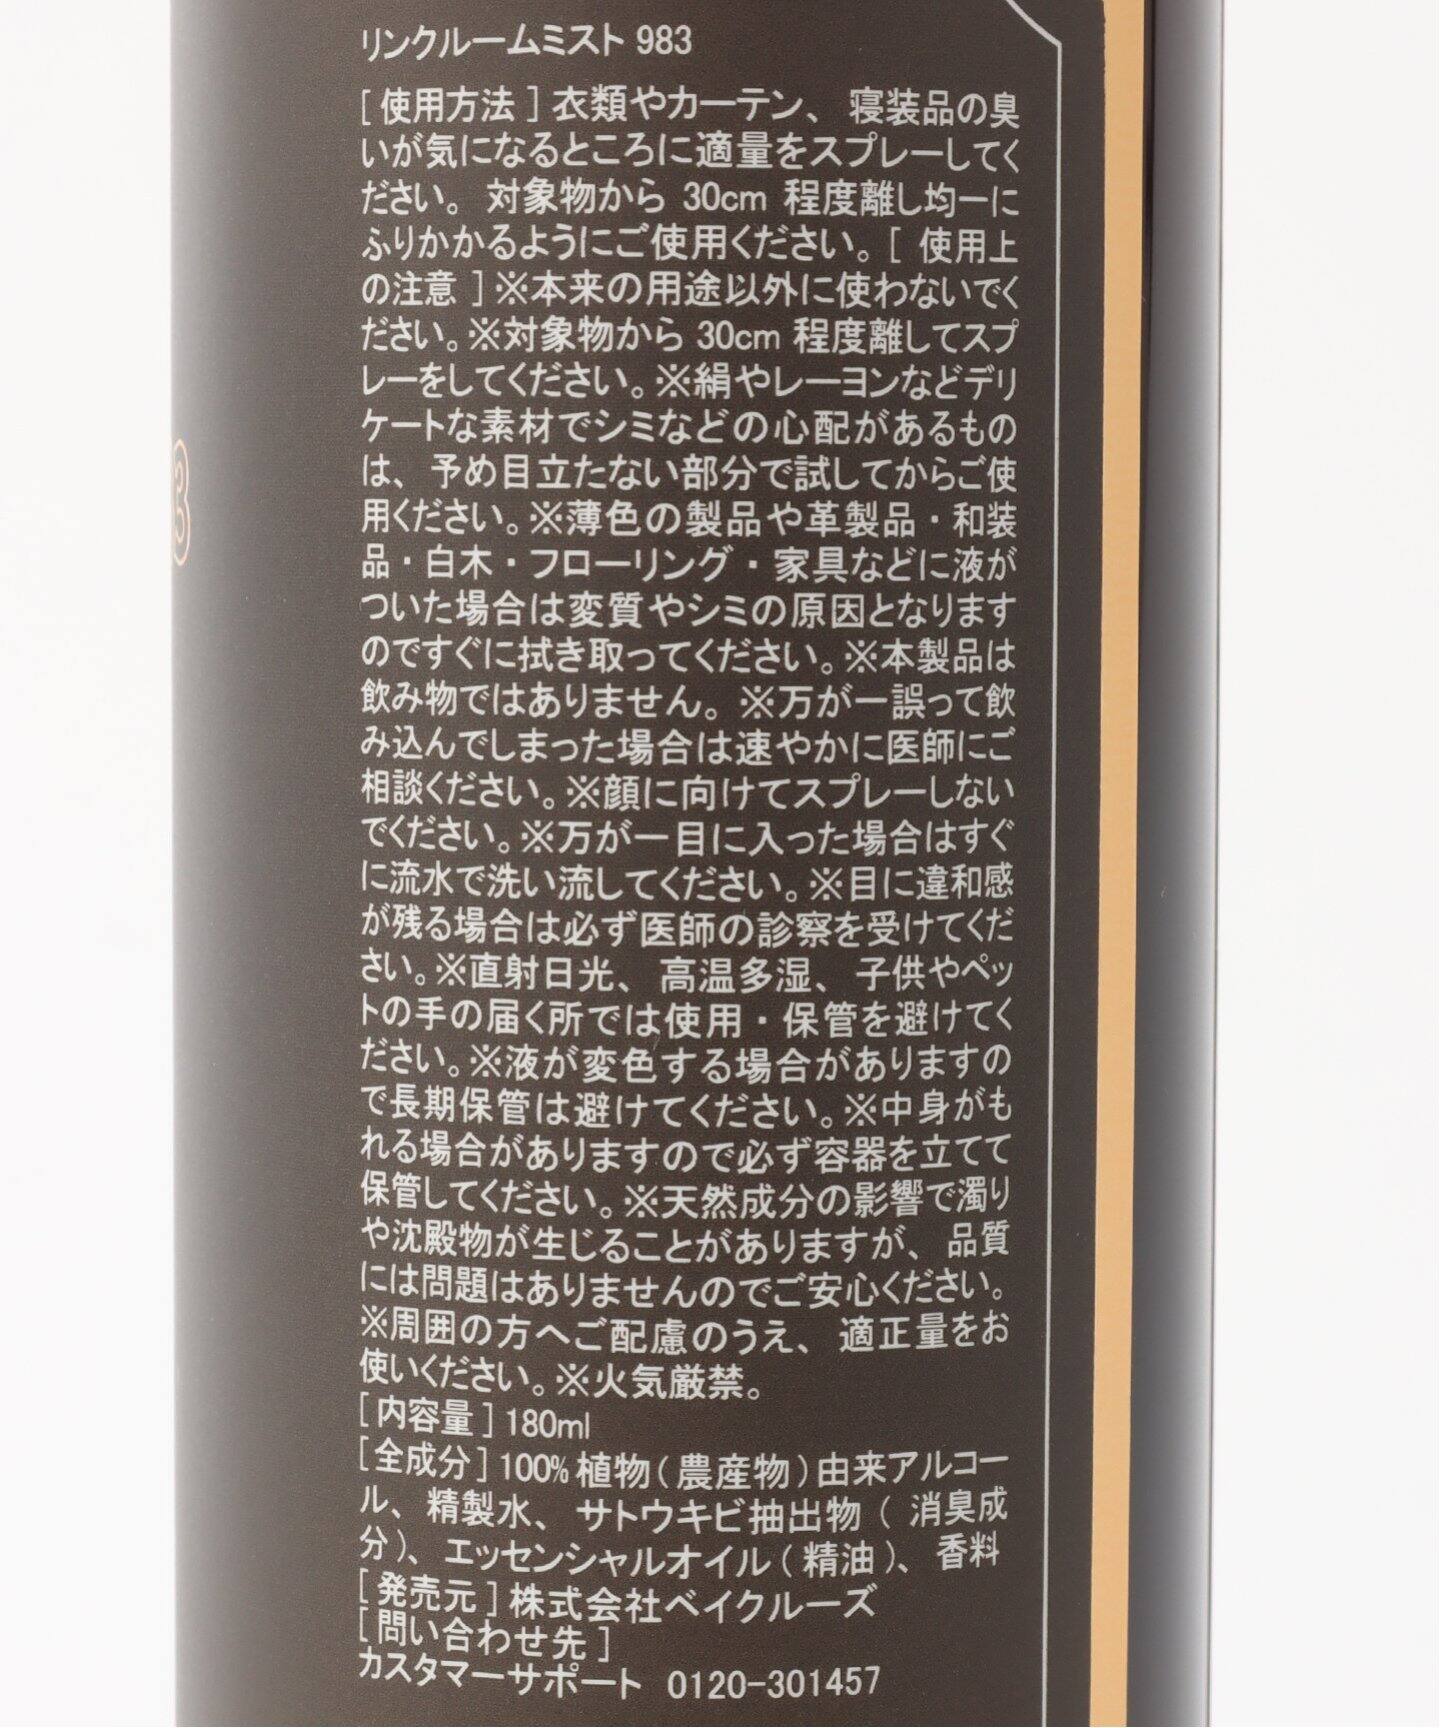 リンクルームミスト 983
[ 使用方法 ] 衣類やカーテン、寝装品の臭
いが気になるところに適量をスプレーしてく
ださい。対象物から 30cm 程度離し均一に
ふりかかるようにご使用ください。[ 使用上
の注意 ]※本来の用途以外に使わないでく
ださい。※対象物から 30cm 程度離してスプ
レーをしてください。※絹やレーヨンなどデリ
ケートな素材でシミなどの心配があるもの
は、予め目立たない部分で試してからご使
用ください。※薄色の製品や革製品・和装
品・白木・フローリング・家具などに液が
ついた場合は変質やシミの原因となります
のですぐに拭き取ってください。※本製品は
飲み物ではありません。※万が一誤って飲
み込んでしまった場合は速やかに医師にご
相談ください。※顔に向けてスプレーしない
でください。※万が一目に入った場合はすぐ
に流水で洗い流してください。※目に違和感
が残る場合は必ず医師の診察を受けてくだ
さい。※直射日光、高温多湿、子供やペッ
トの手の届く所では使用・保管を避けてく
ださい。※液が変色する場合がありますの
で長期保管は避けてください。※中身がも
れる場合がありますので必ず容器を立てて
保管してください。※天然成分の影響で濁り
や沈殿物が生じることがありますが、品質
には問題はありませんのでご安心ください。
※周囲の方へご配慮のうえ、適正量をお
使いください。※火気厳禁。
[ 内容量 ] 180ml
[ 全成分 ] 100% 植物 ( 農産物 ) 由来アルコー
ル、精製水、サトウキビ抽出物 ( 消臭成
分 )、エッセンシャルオイル ( 精油 )、香料
[ 発売元 ] 株式会社ベイクルーズ
[ 問い合わせ先 ]
カスタマーサポート 0120-301457
3